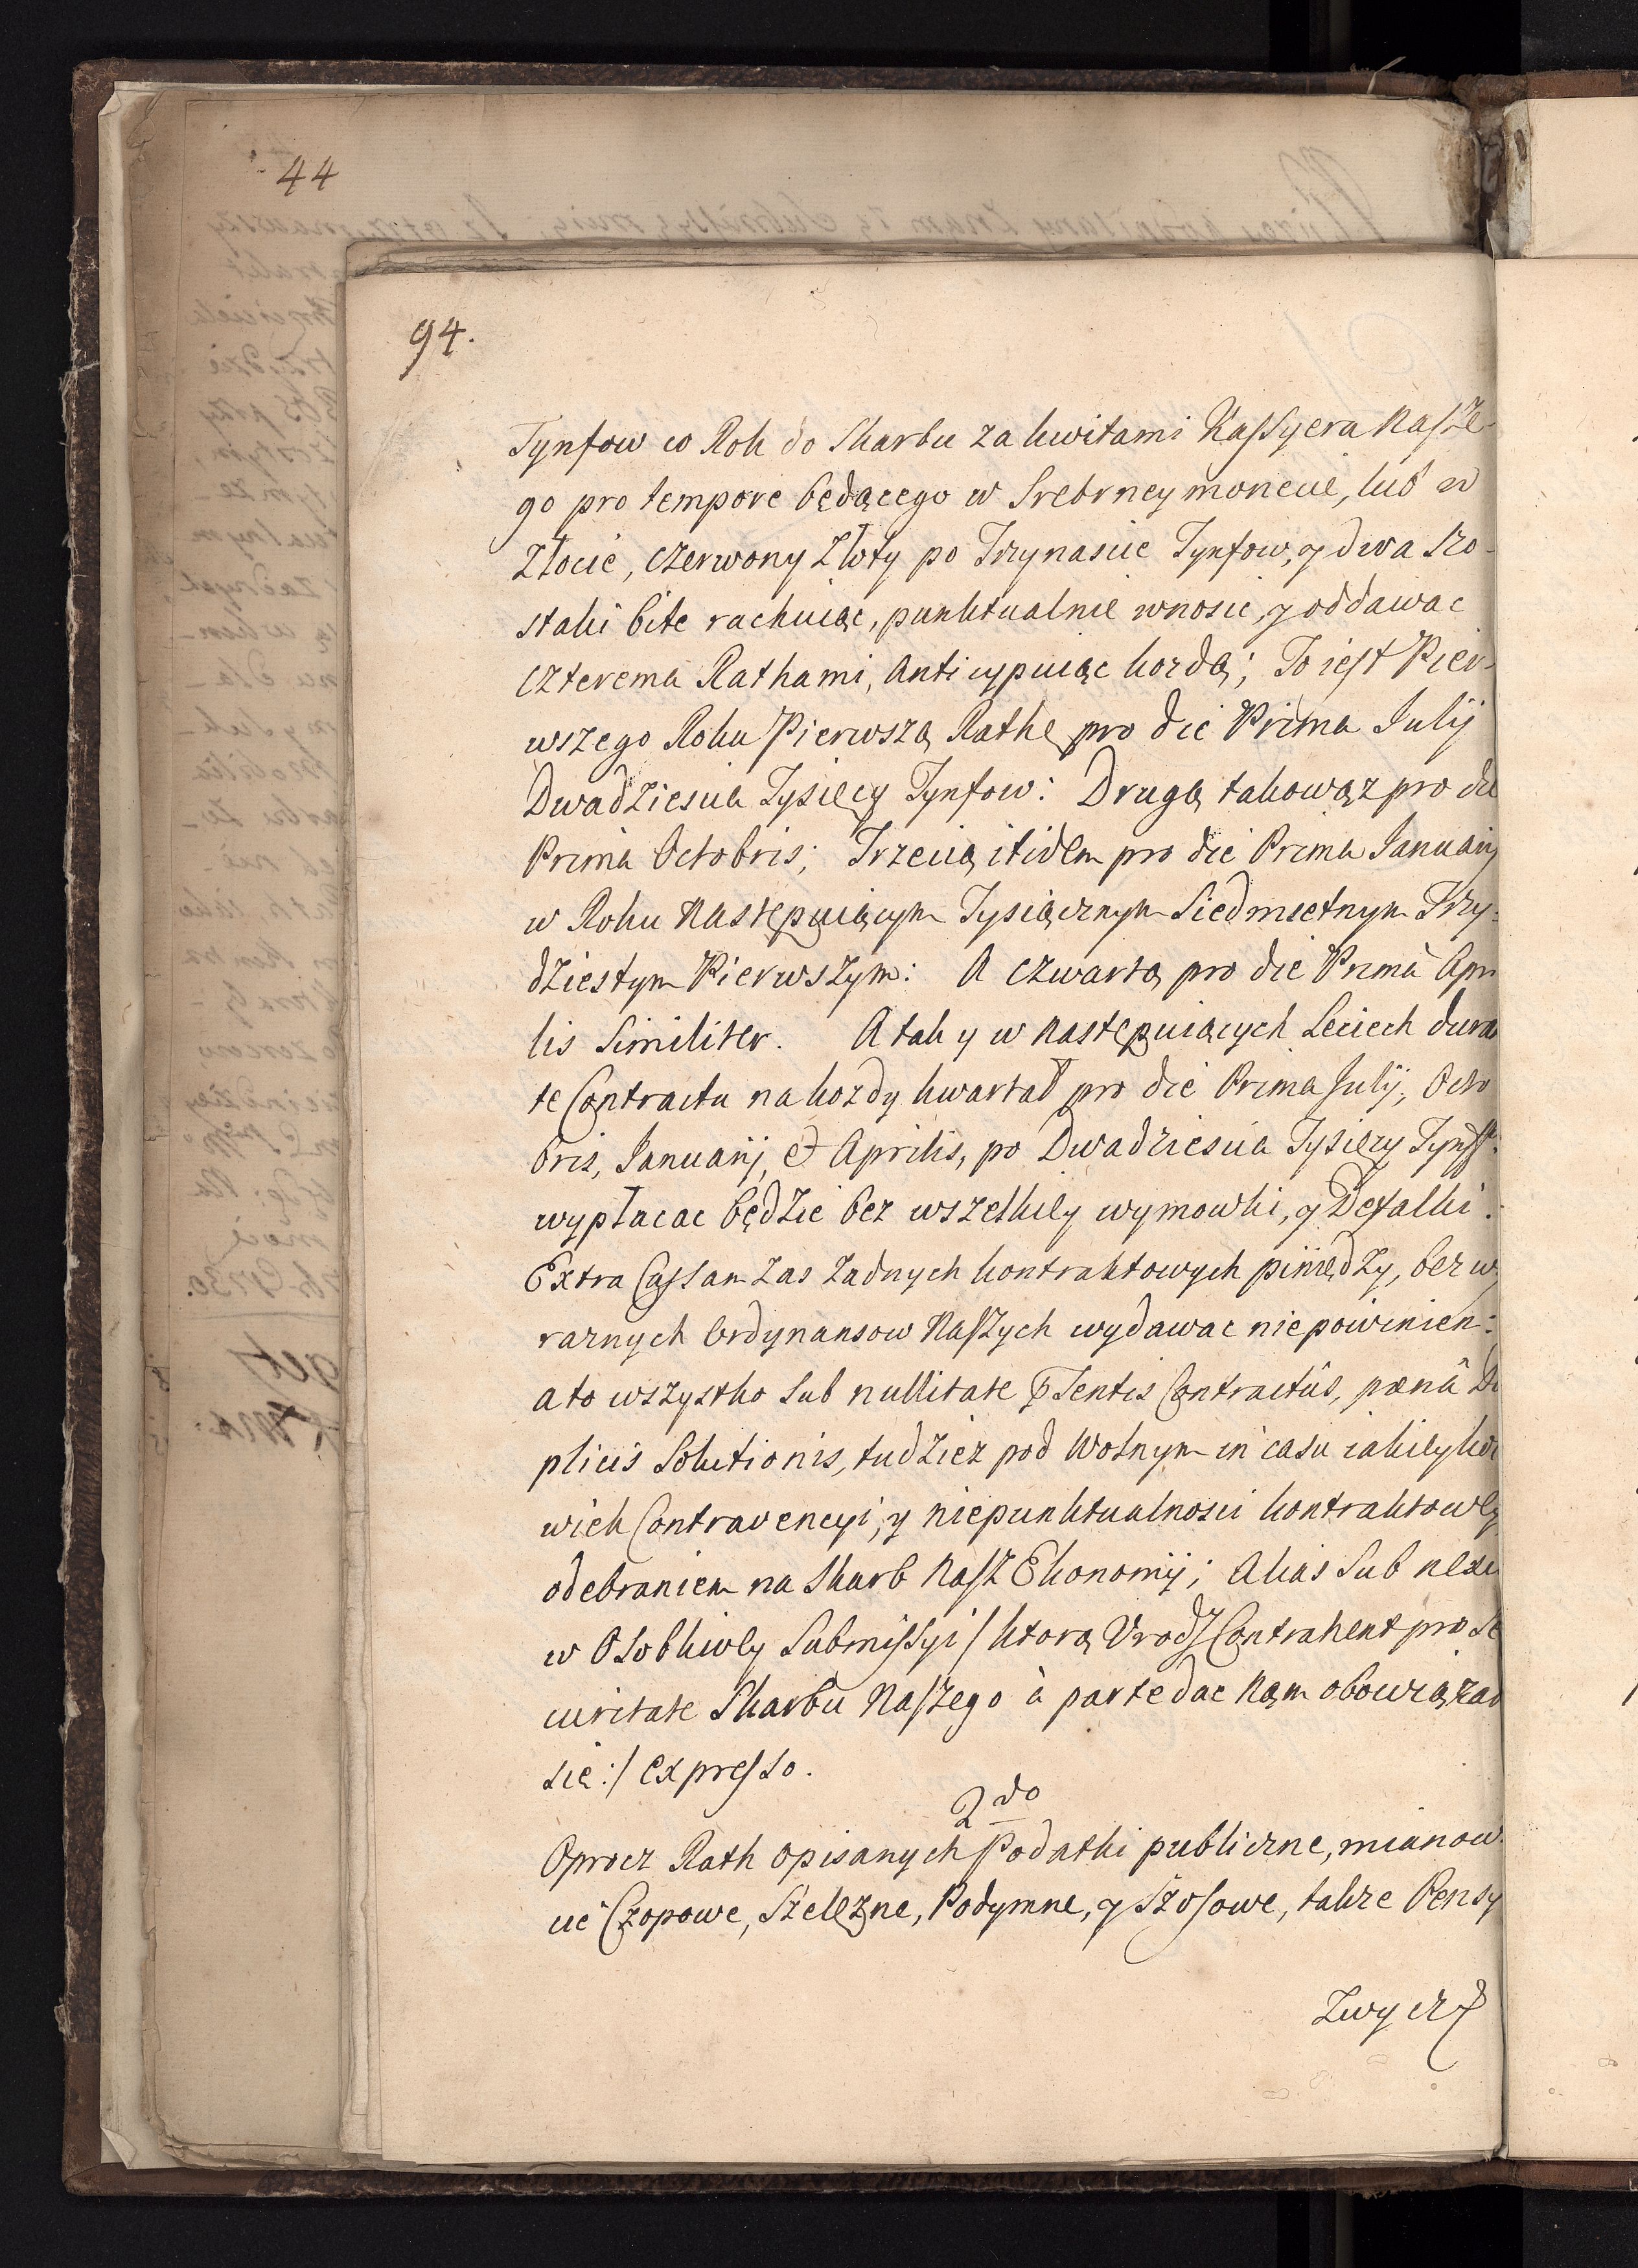 44
94.
Tynfow w Rok do Skarbu za kwitami Kassyera Nasze-
go pro tempore będącego w Srebrney monecie, lub w
Złocie, czerwony Złoty po Trzynascie Tynfow, y dwa szo-
staki bite rachuiąc, punktualnie wnosic, y oddawac
czterema Rathami, anticypuiąc kozdą; To iest Pier-
wszego Roku Pierwszą Rathę pro die Prima Julij
Dwadziescia Tysięcy Tynfow: Drugą takowąz pro die
Prima Octobris; Trzecią itidem pro die Prima Januarij
w Roku Następuiącym Tysiącznym Siedmsetnym Trzy-
dziestym Pierwszym: A czwartą pro die Primâ Apri
lis Similiter. A tak y w następuiących Leciech duran
te Contractu na kozdy kwartał pro die Prima Julij, Octo
bris, Januarij, et Aprilis, po Dwadziescia Tysięcy Tynff:
wypłacac będzie bez wszelkiey wymowki, y Defalki.
Extra Cassam zas zadnych kontraktowych pieniędzy, bez wy
raznych Ordynansow Naszych wydawac niepowinien:
a to wszystko sub nullitate psentis Contractûs, pœnâ Du
plicis Solutionis, tudziez pod Wolnym in casu iakieyko
wiek Contravencyi, y niepunktualnosci kontraktowey
odebraniem na Skarb Nasz Ekonomij; Alias sub nexu
w Osobliwey Submissyi /: ktorą Urodz Contrahent pro se
curitate Skarbu Naszego à parte dac Nam obowiązał
się :/ expresso.
2do
Oprocz Rath opisanych Podatki publiczne, mianow
cie Czopowe, Szelęzne, Podymne, y Szosowe, takze Pensy
Zwycz